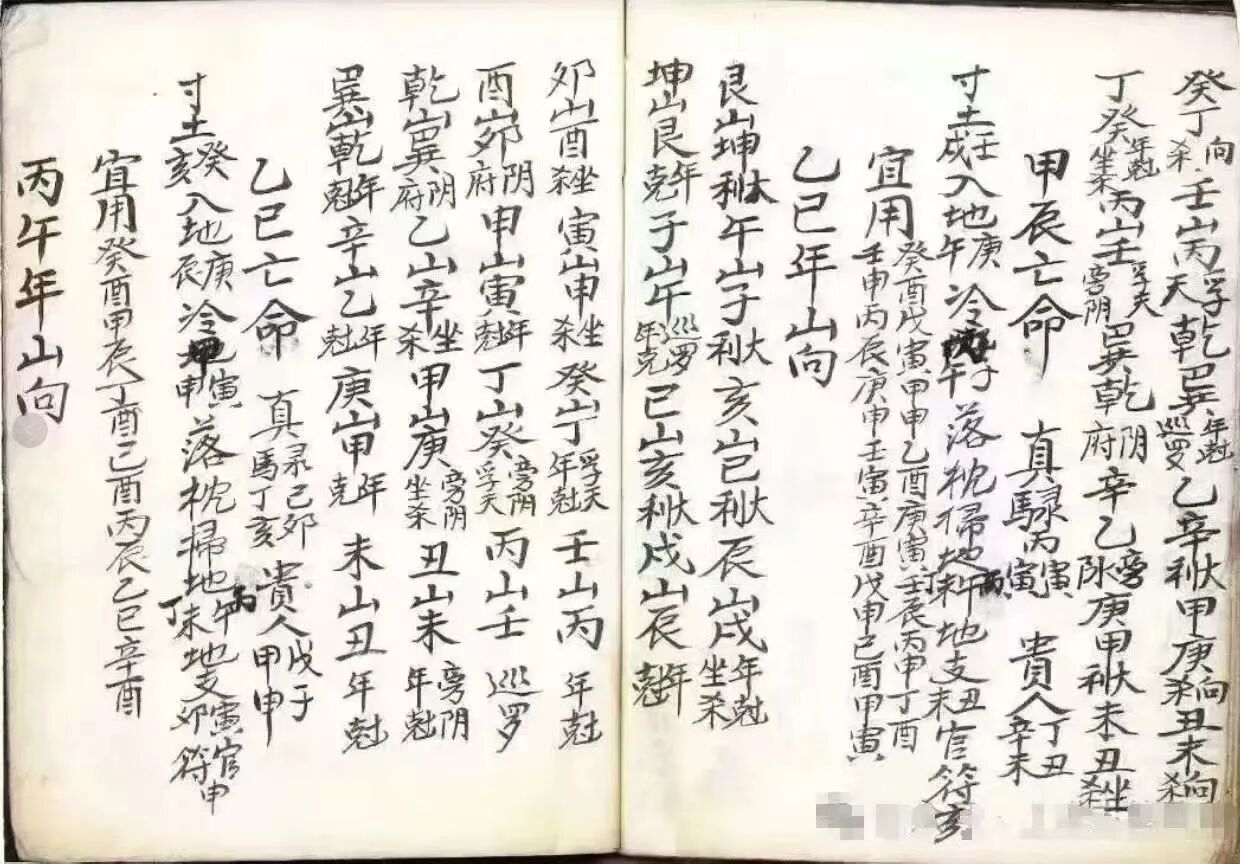 癸丁向杀壬山丙浮天乾巽年尅巡罗乙辛大利甲庚向杀丑未向杀
丁癸年尅坐杀丙山壬浮天旁阴巽乾阴府辛乙旁阴庚甲大利未丑坐杀
甲辰亡命 真禄丙寅馬寅 貴人丁丑辛未
寸土壬戌入地庚午冷地子午落枕掃地未丁地支丑未官符亥
宜用癸酉戊寅甲申乙酉庚寅壬辰丙申丁酉
壬申丙辰庚申壬寅辛酉戊申己酉甲寅
乙巳年山向
艮山坤大利午山子大利亥山巳大利辰山戌年尅坐杀
坤山艮年克子山午巡罗年克巳山亥大利戌山辰年尅
卯山酉坐杀寅山申坐杀癸山丁浮天年尅壬山丙年尅
酉山卯阴府申山寅年尅丁山癸旁阴浮天丙山壬巡罗
乾山巽阴府乙山辛坐杀甲山庚旁阴坐杀丑山未旁阴年尅
巽山乾年尅辛山乙年尅庚山甲年克未山丑年尅
乙巳亡命 真禄己卯馬丁亥 貴人戊子甲申
寸土癸亥入地庚辰冷地寅申落枕掃地午丁未地支寅卯官符申
宜用癸酉甲辰丁酉己酉丙辰乙巳辛酉
丙午年山向